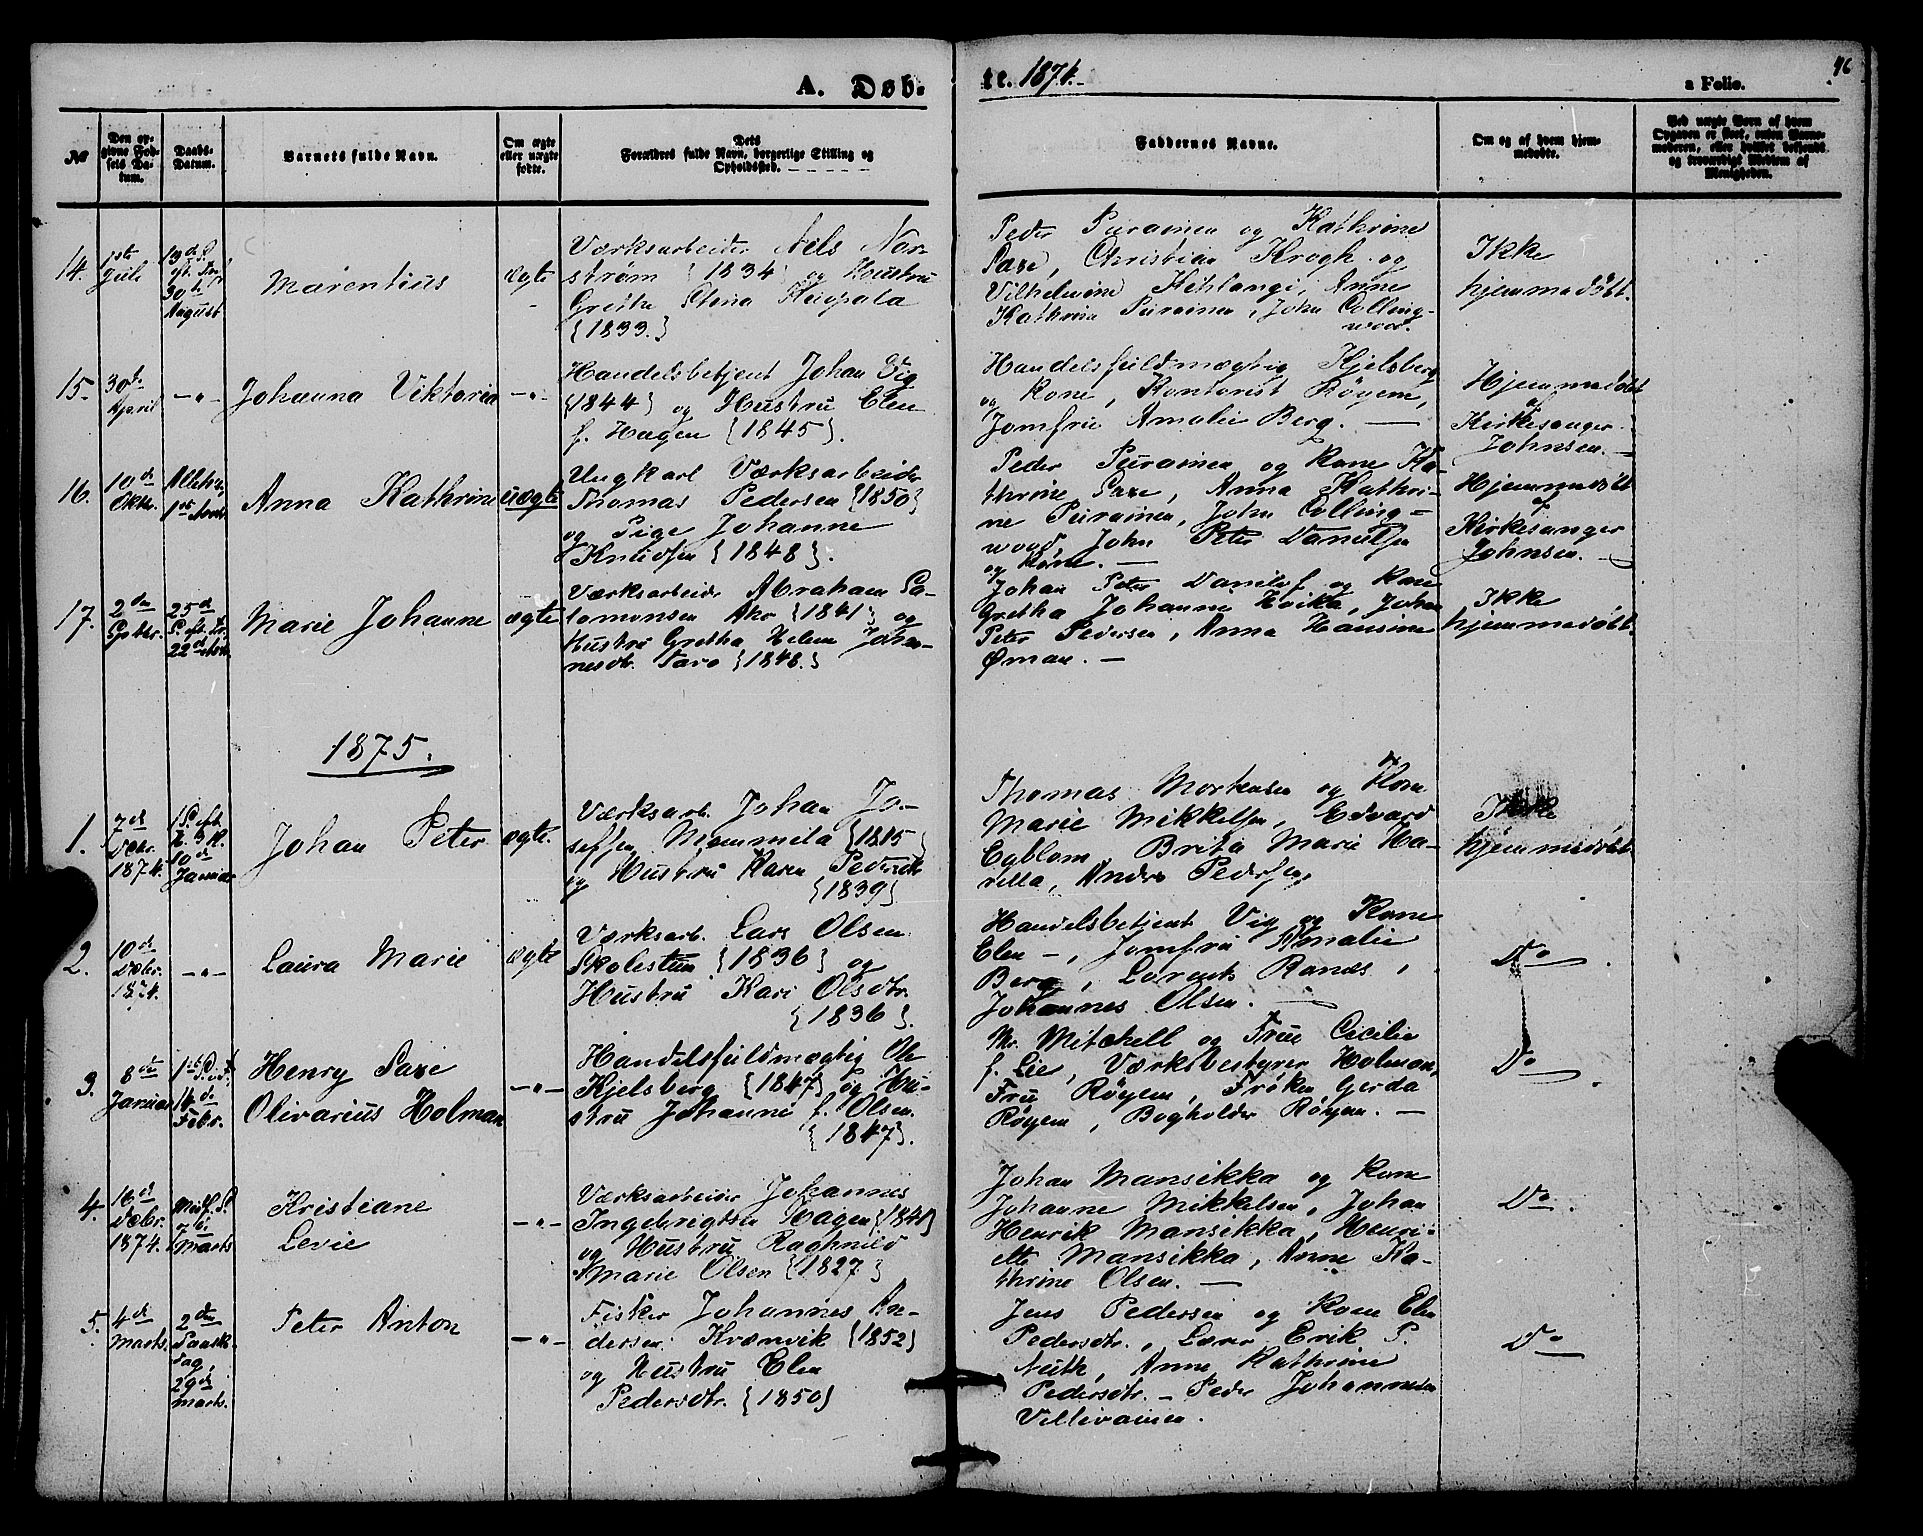 A. Døb-
te. 1874.
a Folio.
46
№
Den op-
givne Fød-
sels Da-
tum.
Daabs-
Datum.
Barnets fulde Navn.
Om ægte
eller uægte
fødte.
Dets
Forældres fulde Navn, borgerlige Stilling og
Opholdssted.
Faddernes Navne.
Om og af hvem hjem-
medøbte.
Ved uægte Børn af hvem
Opgaven er skeet, enten Barne-
moderen, eller hvilket bekjendt
og troværdigt Medlem af
Menigheden.
14.
1ste
Juli
30te
August
Marentius
ægte
Værksarbeider Nels Nor-
strøm {1834} og Hustru
Gretha Stina
{1833.}
Peder Purainen og Kathrine
Saxe, Christian Krogh og
Vilhelmine Anne
Kathrine Purainen, John Colling-
wood.
Ikke
hjemmedøbt.
15.
30de
April
-"-
Johanna Viktoria
-"-
Handelsbetjent Johan Vig
{1844} og Hustru Elen
f. Hagen {1845}.
Handelsfuldmægtig Kjelsberg
og Kone, Kontorist Røyem,
Jomfru Amalie Berg. —
Hjemmedøbt
af
Kirkesanger
Johnsen. —
16.
10de
Oktbr.
1ste Novbr.
Anna Kathrine
uægte
Ungkarl Værksarbeider
Thomas Pedersen {1850}
og Pige Johanne
Knudsen {1848}.
Peder Purainen og Kone Ka-
thrine Saxe, Anna Kathri-
ne Purainen, John Colling-
wood, John Peter Danielsen
og Kone. —
Hjemmedøbt
af
Kirkesanger
Johnsen. —
17.
2den
25de
S. eft. Tr.
22de Novbr.
Marie Johanne
ægte
Værksarbeider Abraham Sa-
lomonsen Akr {1841} og
Hustru Gretha Helena Johan-
nesdtr. Tara {1848.}
Johan Peter Danielsen og Kone
Gretha Johanne Johan
Peter Pedersen, Anna Hansine
Øman. —
Ikke
hjemmedøbt.
1875.
1.
7de
Decbr.
1874.
1 S. eft.
H. 3 K.
10de
Januar
Johan Peter
ægte.
Værksarb. Johan Jo-
seffsen Mammela {1815}
og Hustru Karen Pedersdtr.
{1839}
Thomas Mortensen og Kone
Marie Mikkelsen, Edvard
Egblom, Brita Marie Ha-
rella, Anders Pedersen,
Ikke
hjemmedøbt.
2.
10de
Decbr.
1874.
-"-
Laura Marie
ægte
Værksarb. Lars Olsen
{1836} og
Hustru Kari Olsdtr.
{1836}.
Handelsbetjent Vig og Kone
Elen -, Jomfru Amalie
Berg, Lorents Ranæs,
Johannes Olsen. —
Do
3.
8de
Januar
14de
Febr.
Henry Saxe
Olivarius Holman
-"-
Handelsfuldmægtig Ole
Kjelsberg {1847} og Hu-
stru Johanne f. Olsen.
{1847}.
Mr. Mitchell og Frue Cecilie
f. Lie, Værksbestyrer Holman,
Fru Røyem, Frøken Gerda
Røyem, Bogholder Røyem. —
Do
4.
16de
Decbr.
1874.
Midf. S.
7de
Marts
Kristiane
Levie
-"-
Værksarbeider Johannes
Ingebrigtsen Hagen {1841}
og Hustru Raghnild
Marie Olsen {1827}
Johan Mansikka og Kone
Johanne Mikkelsen, Johan
Henrik Mansikka, Henri-
ette Mansikka, Anne Ka-
thrine Olsen. —
Do
5.
4de
Marts.
2den
Paaske-
dag,
29de
Marts.
Peter Anton
-"-
Fisker Johannes An-
dersen Kvænvik {1852}
og Hustru Elen
Pedersdtr. {1850}
Jens Pedersen og Kone Elen
Pedersdtr., Lærer Erik P.
Nuth, Anne Kathrine
Pedersdtr. - Peder Johannesen
Villivainen.
Do